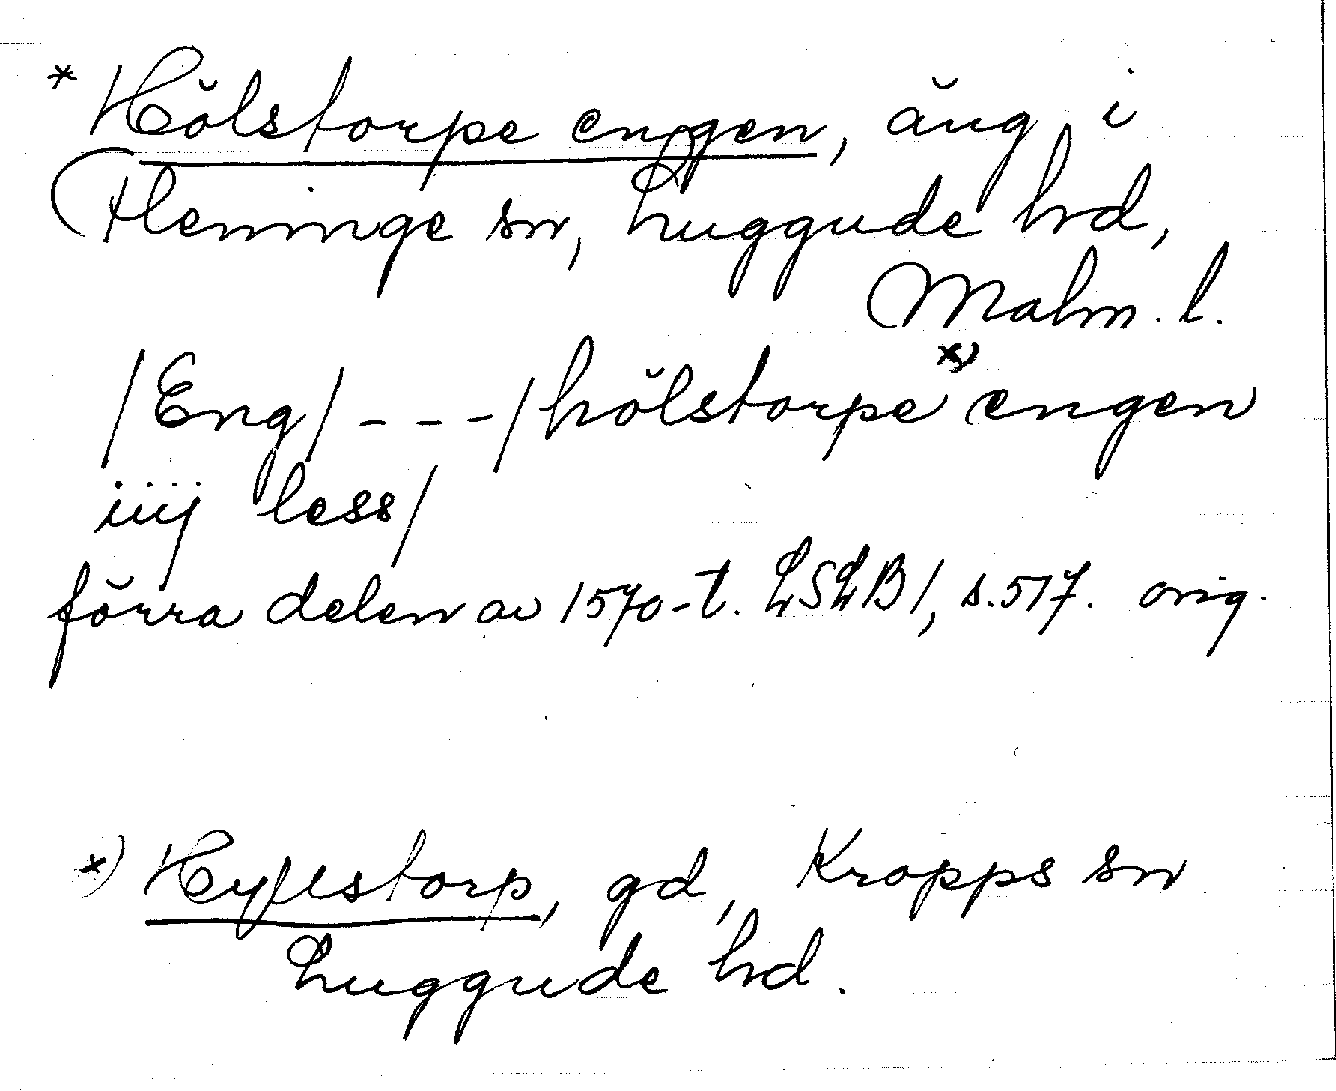 * Hölstorpe engen, äng i
Fleninge sn, Luggude hrd,
Malm. l.
/Eng/ - - - /hölstorpe *) engen
iiij less/
förra delen av 1570-t. LSLB 1, s. 517. orig.
*) Hyllstorp, gd, Kropps sn
Luggude hrd.